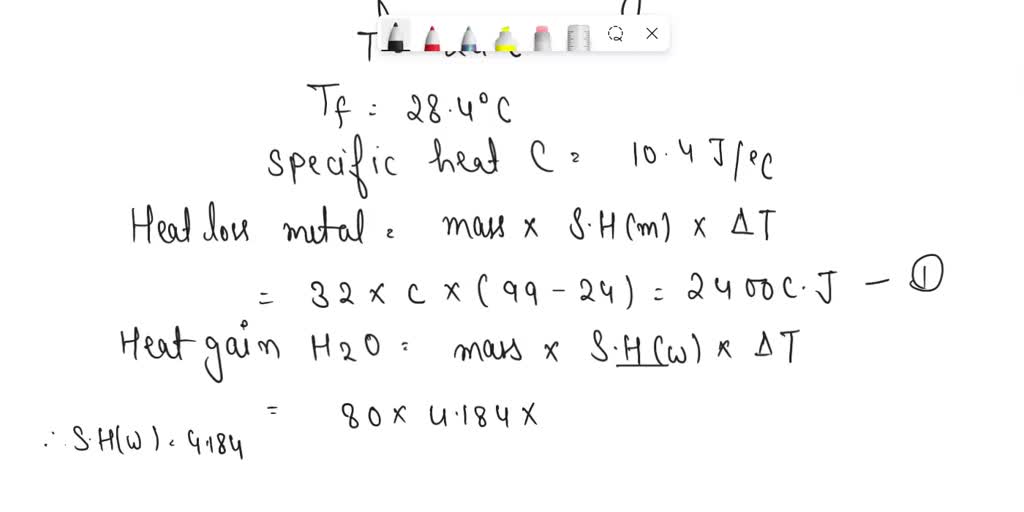 Tf = 28.4°C
Specific heat C = 10.4 J/°C
Heat loss metal = mass x S.H(m) x ΔT
= 32 x C x (99 - 24) = 2400C.J - ①
Heat gain H2O = mass x S.H(w) x ΔT
= 80 x 4.184 x
∴ S.H(w) = 4.184